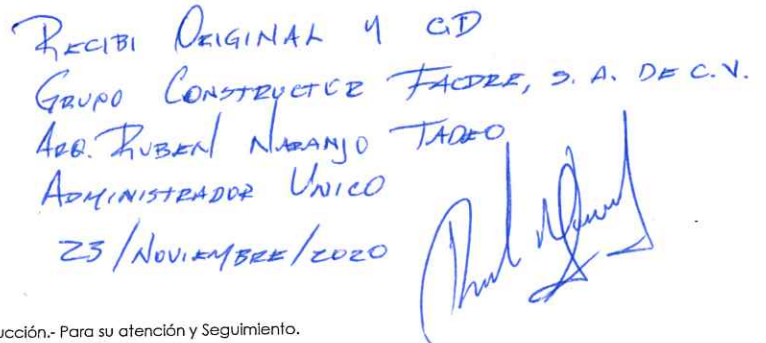 RECIBI ORIGINAL Y CD
GRUPO CONSTRUCTOR FACDRE, S. A. DE C.V.
ARQ. RUBEN NARANJO TADEO
ADMINISTRADOR UNICO
23/NOVIEMBRE/2020
ucción.- Para su atención y Seguimiento.